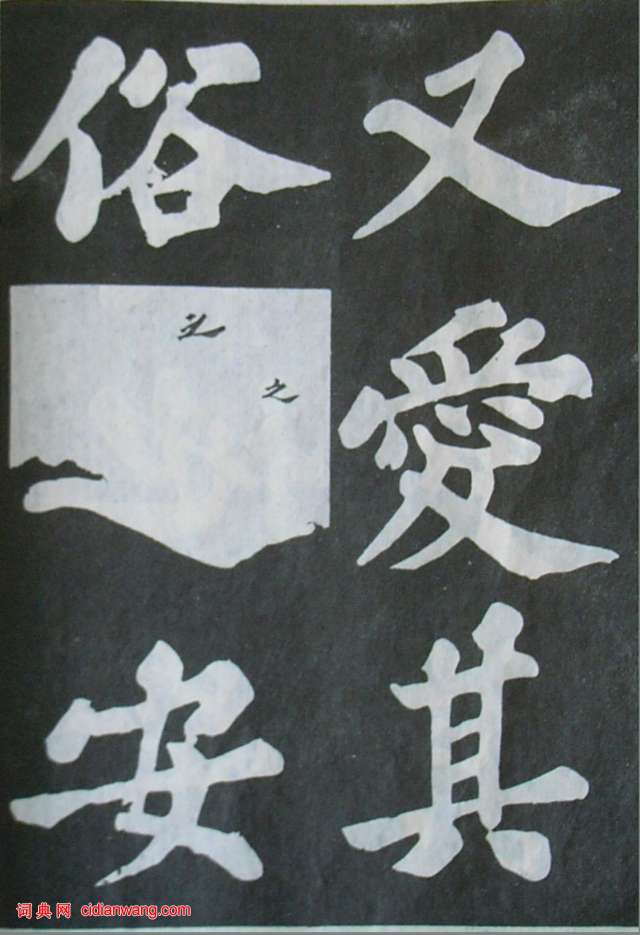 又愛其
俗之安
词典网 cidianwang.com